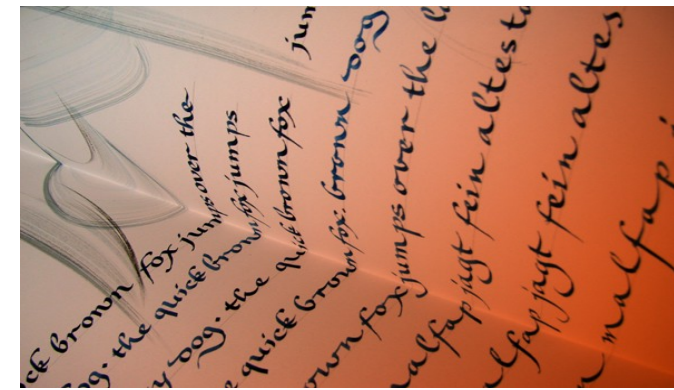 ck brown fox jumps over the
og. the quick brown fox jumps
y dog. the quick brown fox jum
e quick brown fox. brown dog
own fox jumps over the la
alfap jagt fein altesta
lfap jagt fein altes
malfap